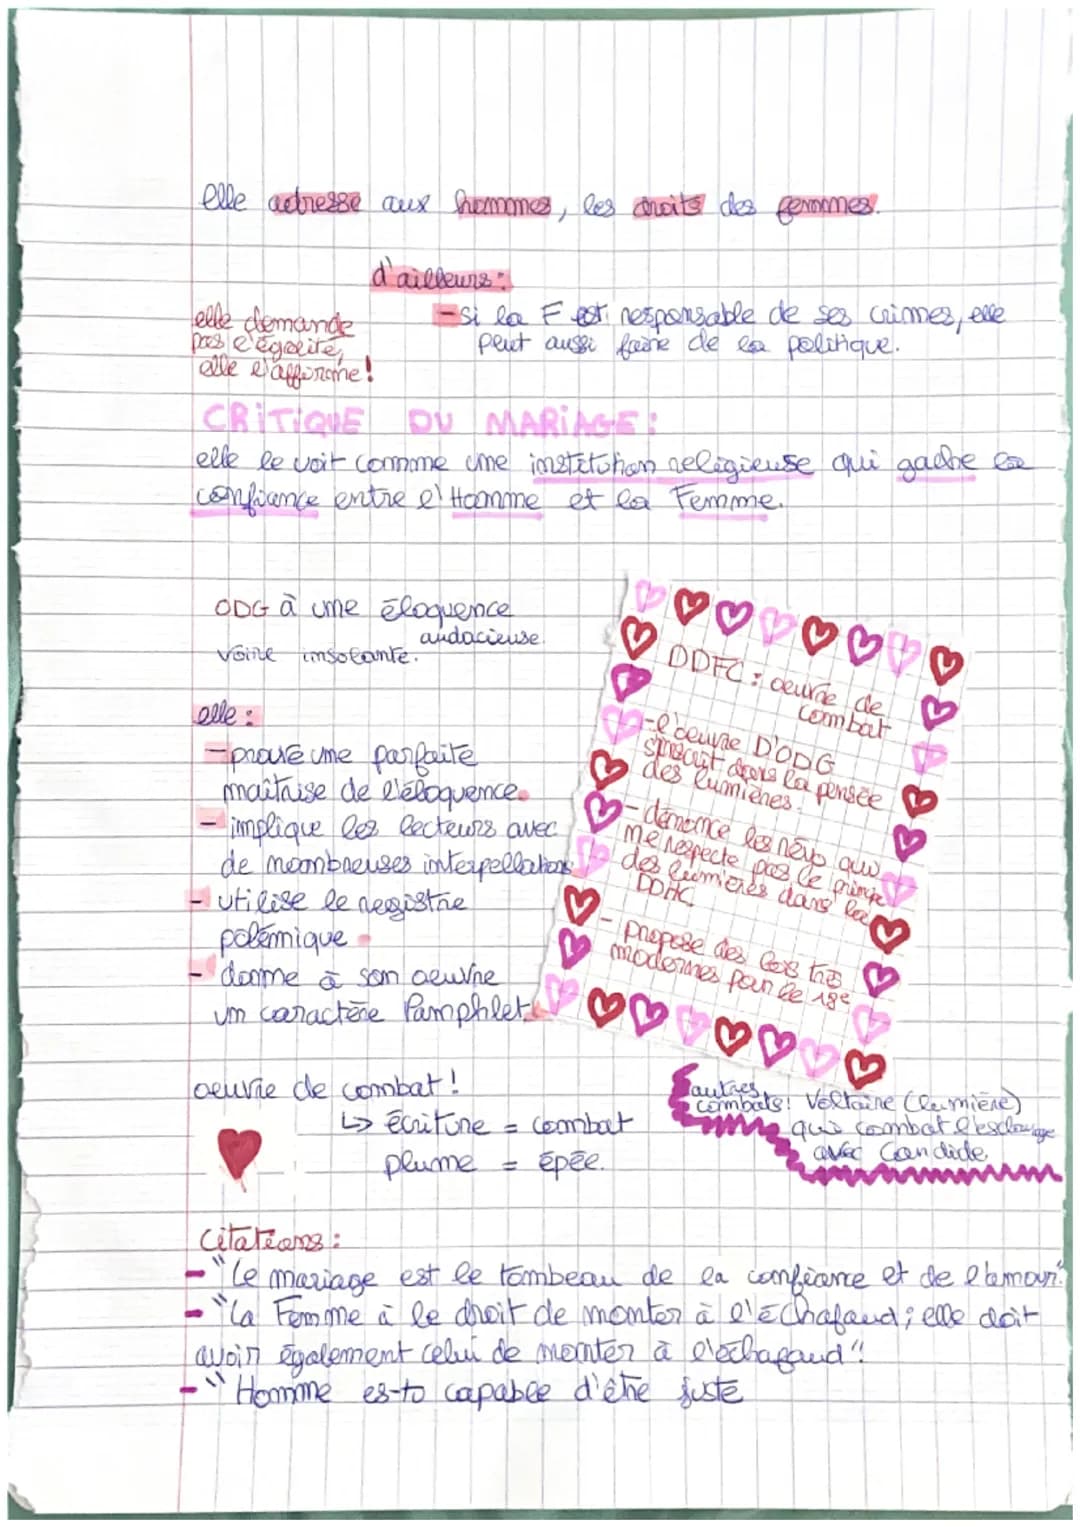 elle adresse aux hommes, les droits des femmes.
d'ailleurs :
- si la F est responsable de ses crimes, elle
peut aussi faire de la politique.
elle demande
pas l'égalité,
elle l'affirme !
CRITIQUE DU MARIAGE :
elle le voit comme une institution religieuse qui gache la
confiance entre l'Homme et la Femme.
ODG à une éloquence
audacieuse
voire insolante.
elle :
- prouve une parfaite
maîtrise de l'éloquence.
- implique les lecteurs avec
de noombreuses interpellations
- utilise le registre
polémique.
- donne à son oeuvre
un caractère Pamphlet.
DDFC : oeuvre de
combat
- l'oeuvre D'ODG
s'inscrit dans la pensée
des lumières.
- dénonce les révo qui
ne respecte pas le principe
des lumières dans la
DDHC.
- propose des lois très
modernes pour le 18e
oeuvre de combat !
↳ écriture = combat
plume = épée.
autres
combats : Voltaire (lumière)
qui combat l'esclavage
avec Candide
Citations :
- "Le mariage est le tombeau de la confiance et de l'amour."
- "La Femme à le droit de monter à l'échafaud ; elle doit
avoir également celui de monter à l'échafaud"!
- "Homme es-to capable d'être juste